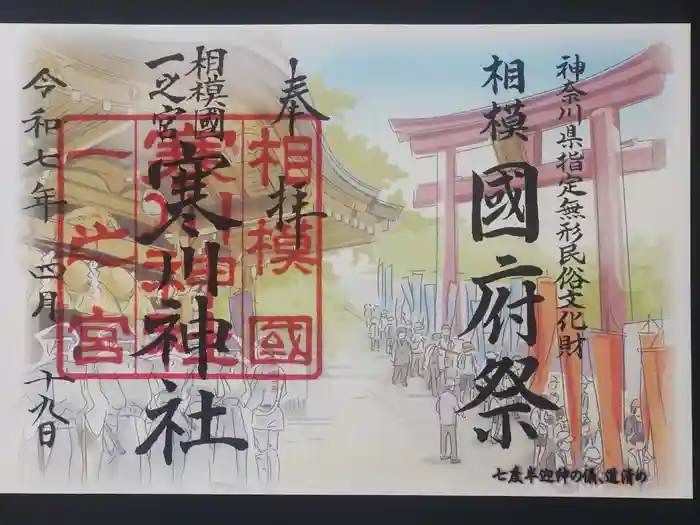 神奈川県指定無形民俗文化財
相模國府祭
七度半迎神の儀、道清め
奉拝
相模國
一之宮
寒川神社
令和七年四月十九日
相模國
寒川神社
一之宮